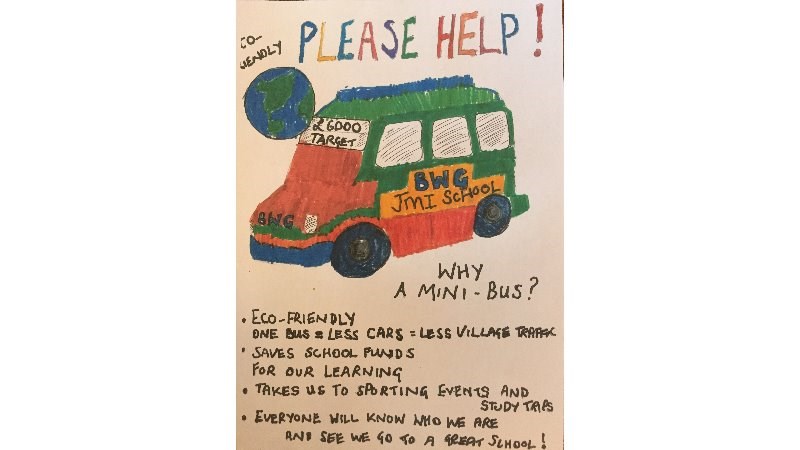 PLEASE HELP!
CO-
IENDLY
£6000
TARGET
BWG
JMI SCHOOL
BWG
WHY
A MINI-BUS?
• ECO-FRIENDLY
ONE BUS = LESS CARS = LESS VILLAGE TRAFFIC
• SAVES SCHOOL FUNDS
FOR OUR LEARNING
• TAKES US TO SPORTING EVENTS AND
STUDY TRIPS
• EVERYONE WILL KNOW WHO WE ARE
AND SEE WE GO TO A GREAT SCHOOL!